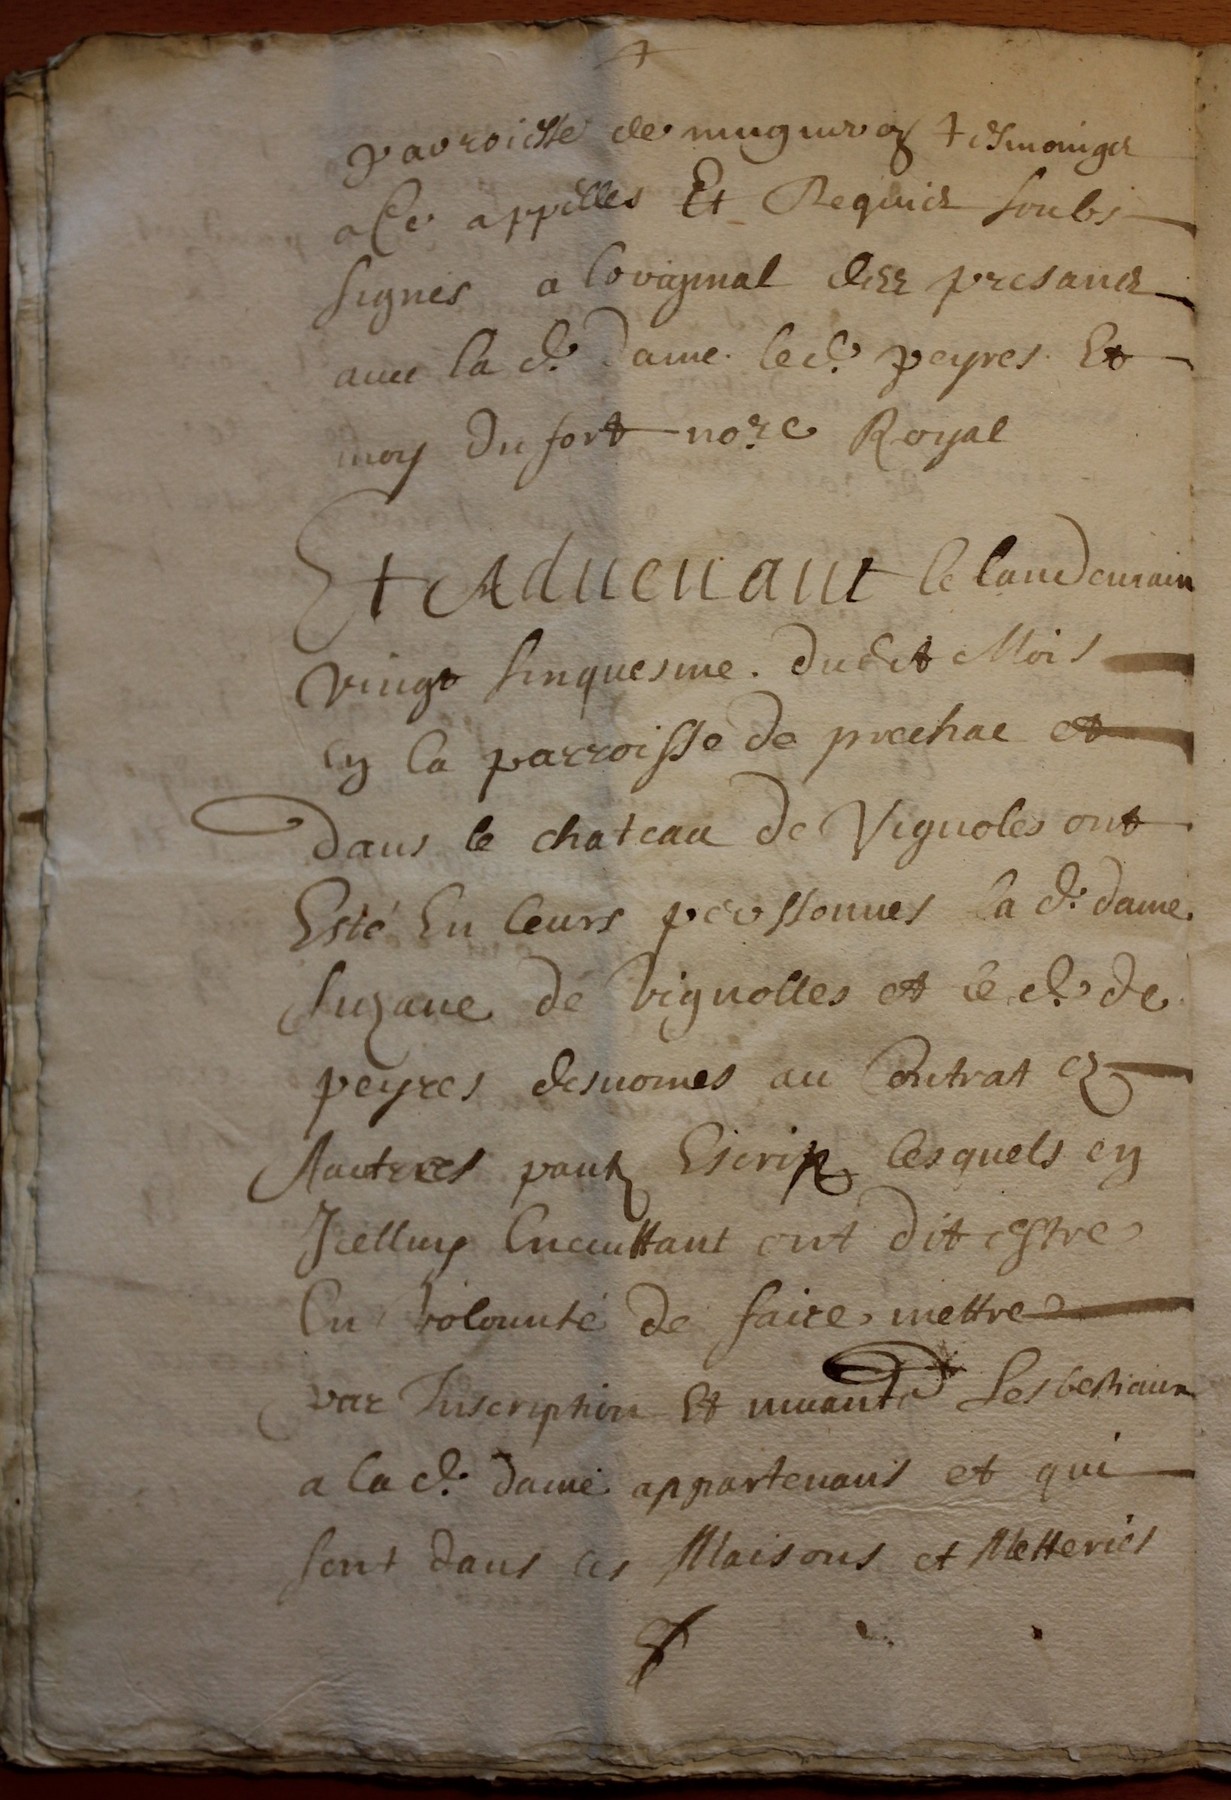 parroisse de mugnron tesmoings
a Ce appelles Et Requis soubs
signes a loriginal des presans
avec la d.e Dame. le d.t peyres. Et
moy Dufort no.re Royal
Et Advenant le landemain
vingt sinquesme. dudit Mois
en la parroisse de prechac et
Dans le chateau de Vignoles ont
Esté En leurs perssonnes la d.e dame
suzane de vignolles et le d.t de
peyres desnomes au Contrat en
Escrip lesquels en
Icelluy ont dit estre
En volounté de faire mettre
par Inscription Et les bestiaux
a la d.e dame appartenans et qui
sont dans les Maisons et Metteries